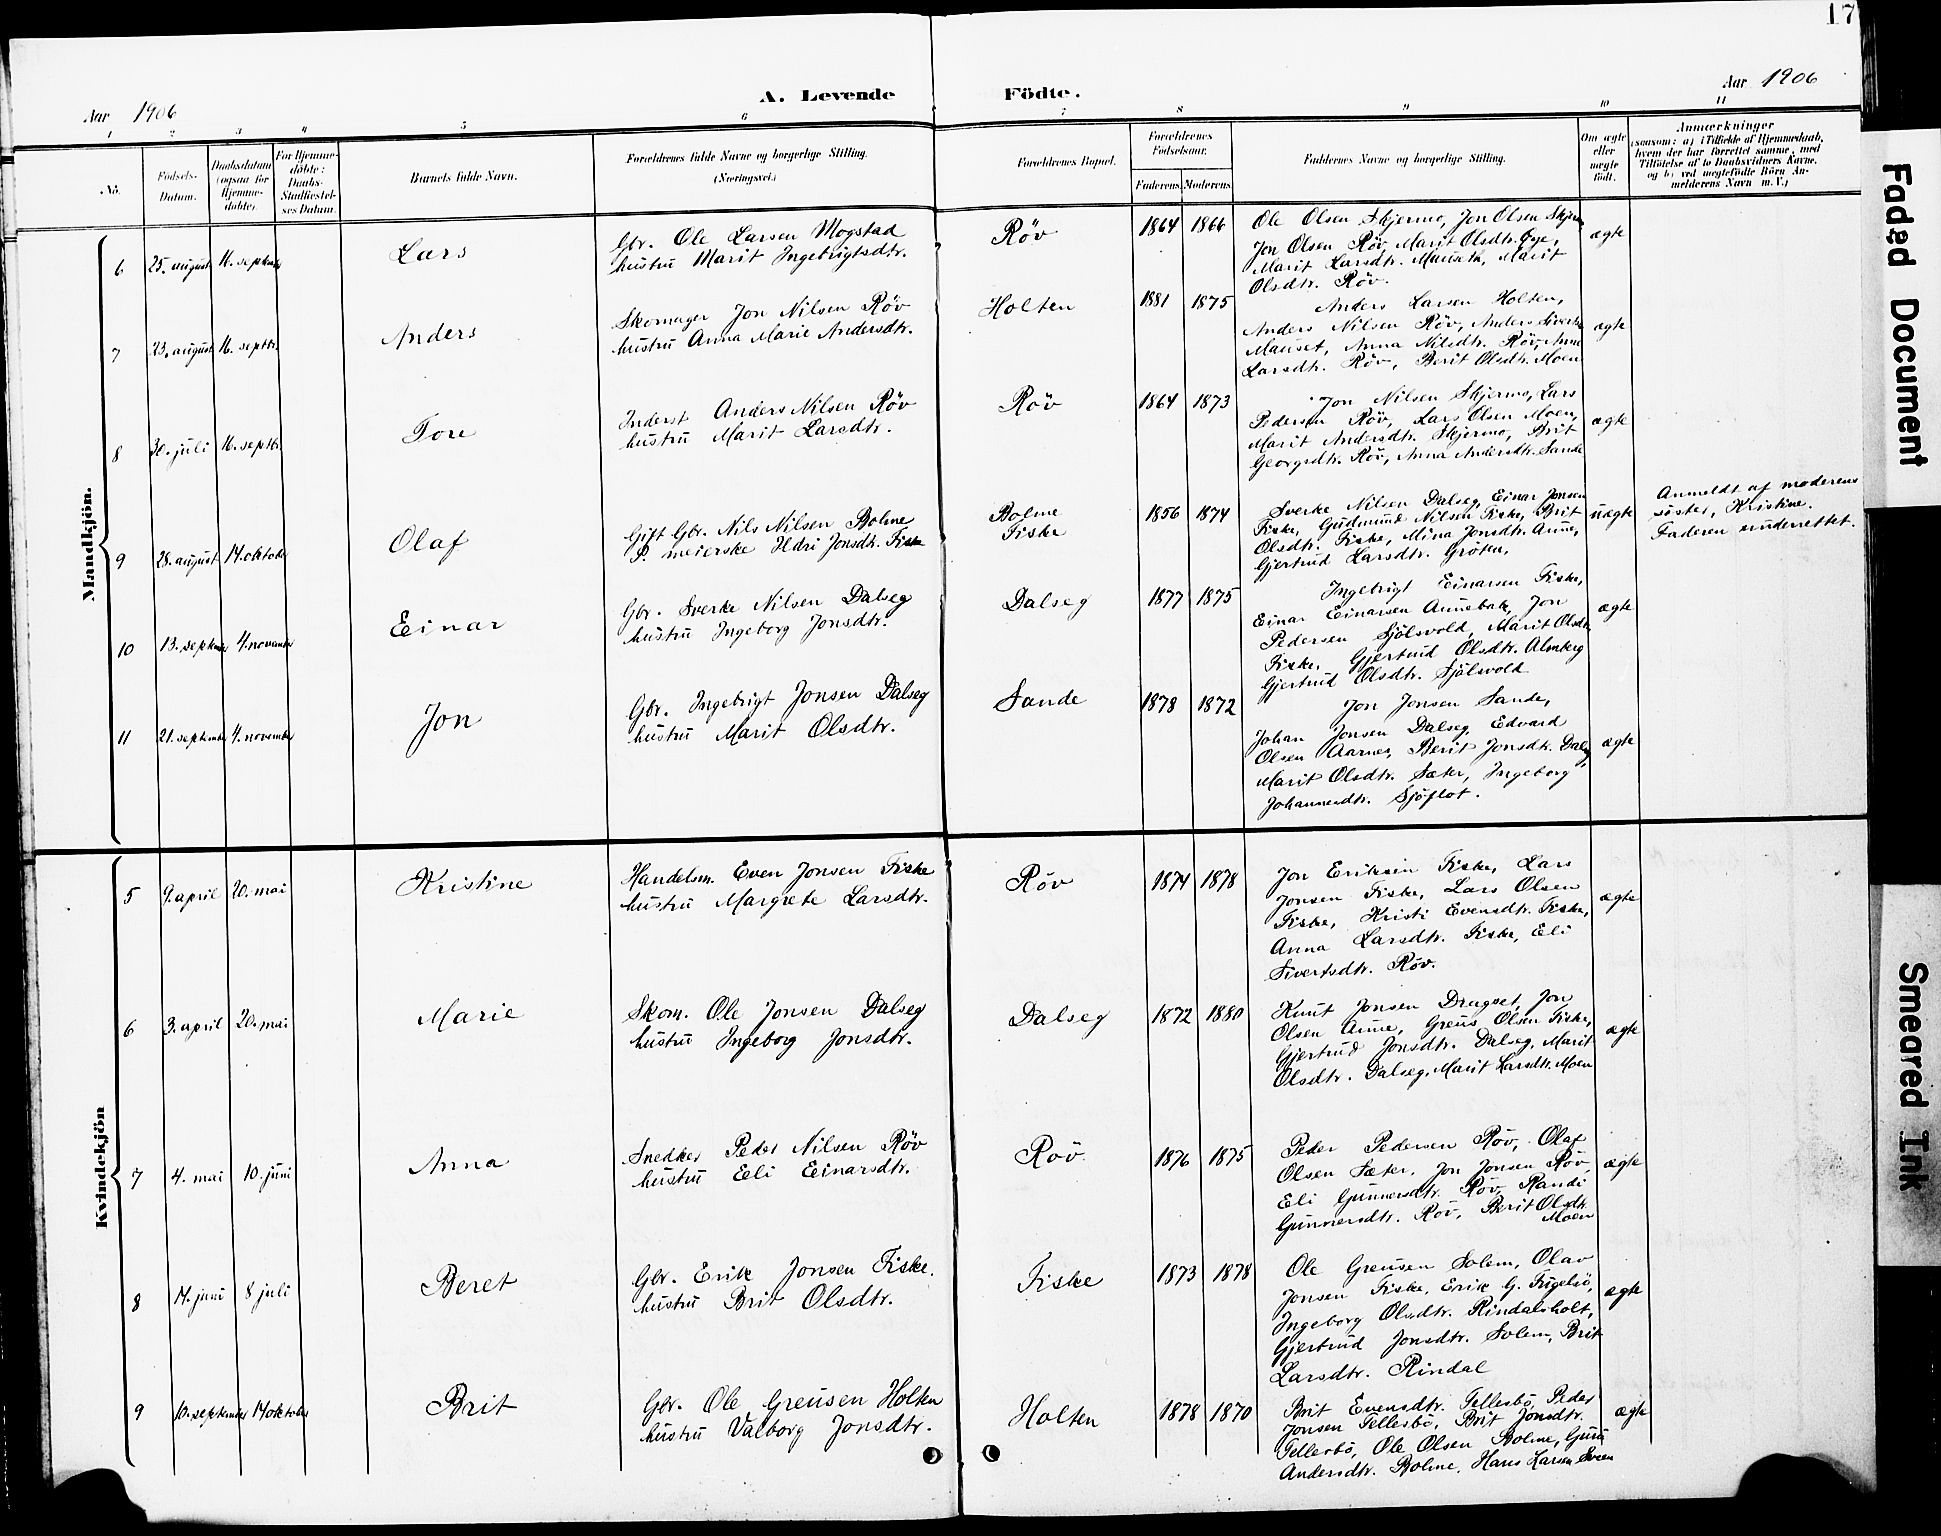 17
Aar 1906
A. Levende Födte.
Aar 1906
1 2 3 4 5 6 7 8 9 10 11
No.
Födsels-
Datum.
Daabsdatum
(ogsaa for
Hjemme-
døbte).
For Hjemme-
döbte:
Daabs-
Stadfæstel-
ses Datum.
Barnets fulde Navn.
Forældrenes fulde Navne og borgerlige Stilling.
(Næringsvei.)
Forældrenes Bopæl.
Forældrenes
Fødselsaar.
Faderens. Moderens.
Faddernes Navne og borgerlige Stilling.
Om ægte
eller
uægte
født.
Anmærkninger
(saasom: a) i Tilfælde af Hjemmedaab,
hvem der har forrettet samme, med
Tilföielse af to Daabsvidners Navne,
og b) ved uegtefödte Börn An-
melderens Navn m. V.)
Mandkjön.
6 25. august 16. septbr Lars
Gbr. Ole Larsen Mogstad
hustru Marit Ingebrigtsdtr.
Röv 1864 1866
Ole Olsen Skjermo, Jon Olsen Skjermo
Jon Olsen Röv, Marit Olsdtr. Öye,
Marit Larsdtr. Mauseth, Marit
Olsdtr. Röv.
ægte
7 23. august 16. septbr. Anders
Skomager Jon Nilsen Röv
hustru Anna Marie Andersdtr.
Holten 1881 1875
Anders Larsen Holten,
Anders Nilsen Röv, Anders Sivertsen
Mauset, Anna Nilsdtr. Röv, Anne
Larsdtr. Röv, Berit Olsdtr. Moen
ægte
8 30. juli 16. septbr. Tore
Inderst Anders Nilsen Röv
hustru Marit Larsdtr.
Röv 1864 1873
Jon Nilsen Skjermo, Lars
Pedersen Röv, Lars Olsen Moen,
Marit Andersdtr. Skjermo, Brit
Georgsdtr. Röv, Anna Andersdtr. Sande
ægte
9 28. august 14. oktober Olaf
Gift Gbr. Nils Nilsen Bolme
P. meierske Ildri Jonsdtr. Fiske
Bolme
Fiske
1856 1874
Sverke Nilsen Dalseg, Einar Jonsen
Fiske, Gudmund Nilsen Fiske, Brit
Olsdtr. Fiske, Mina Jonsdtr. Aune,
Gjertrud Larsdtr. Gröten,
uægte
Anmeldt af moderens
söster, Kristine.
Faderen underrettet.
10 13. september 4. november Einar
Gbr. Sverke Nilsen Dalseg
hustru Ingeborg Jonsdtr.
Dalseg 1877 1875
Ingebrigt Einarsen Fiske,
Einar Einarsen Aunebak, Jon
Pedersen Sjölsvold, Marit Olsdtr.
Fiske, Gjertrud Olsdtr. Almberg
Gjertrud Olsdtr. Sjölsvold
ægte
11 21. september 4. november Jon
Gbr. Ingebrigt Jonsen Dalseg
hustru Marit Olsdtr.
Sande 1878 1872
Jon Jonsen Sande,
Johan Jonsen Dalseg, Edvard
Olsen Aarnes, Berit Jonsdtr. Dalseg,
Marit Olsdtr. Sæter, Ingeborg
Johannesdtr. Sjöflot.
ægte
Kvindekjön
5 9. april 20. mai Kristine
Handelsm. Even Jonsen Fiske
hustru Margrete Larsdtr.
Röv 1874 1878
Jon Eriksen Fiske, Lars
Jonsen Fiske, Lars Olsen
Fiske, Kristi Evensdtr. Fiske,
Anna Larsdtr. Fiske, Eli
Sivertsdtr. Röv.
ægte
6 3. april 20. mai Marie
Skom. Ole Jonsen Dalseg
hustru Ingeborg Jonsdtr.
Dalseg 1872 1880
Knut Jonsen Dragset, Jon
Olsen Aune, Greus Olsen Fiske,
Gjertrud Jonsdtr. Dalseg, Marit
Olsdtr. Dalseg, Marit Larsdtr. Moen
ægte
7 4. mai 10. juni Anna
Snedker Peder Nilsen Röv
hustru Eli Einarsdtr.
Röv 1876 1875
Peder Pedersen Röv, Olaf
Olsen Sæter, Jon Jonsen Röv,
Eli Gunnersdtr. Röv, Randi
Gunnersdtr. Röv, Berit Olsdtr.
Moen
ægte
8 14. juni 8 juli Beret
Gbr. Erik Jonsen Fiske.
hustru Brit Olsdtr.
Fiske 1873 1878
Ole Greusen Solem, Olav
Jonsen Fiske, Erik G. Fugelsö,
Ingeborg Olsdtr. Rindalsholt,
Gjertrud Jonsdtr. Solem, Brit
Larsdtr. Rindal
ægte
9 10. september 14 oktober Brit
Gbr. Ole Greusen Holten
hustru Valborg Jonsdtr.
Holten 1878 1870
Brit Evensdtr. Tellesbö, Peder
Jonsen Tellesbö, Brit Jonsdtr.
Tellesbö, Ole Olsen Bolme, Guru
Andersdtr. Bolme, Hans Larsen Sveen
ægte
Faded Document
Smeared Ink